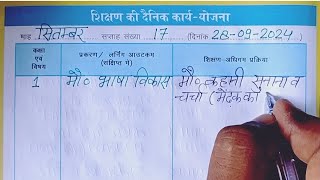 शिक्षण की दैनिक कार्य-योजना
माह सितम्बर सप्ताह संख्या 17 (दिनांक 28-09-2024)
कक्षा एवं विषय
प्रकरण/ लर्निंग आउटकम (संक्षिप्त में)
शिक्षण-अधिगम प्रक्रिया
1 मौ० भाषा विकास मौ० कहानी सुनाना व
चर्चा (मेंढक को